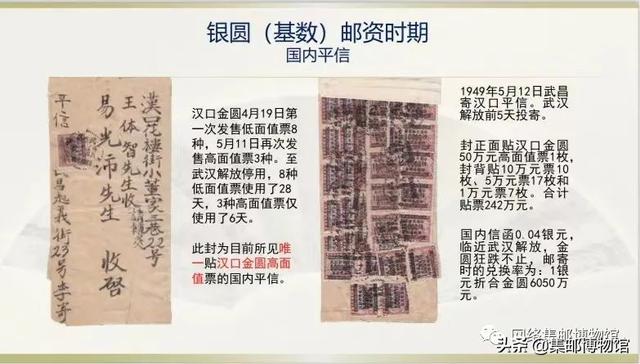 银圆（基数）邮资时期
国内平信
平信
漢口花樓街小董家巷22号
王体智先生收
易光沛先生 收啓
昌起義街23号李寄
汉口金圆4月19日第
一次发售低面值票8
种，5月11日再次发
售高面值票3种。至
武汉解放停用，8种
低面值票使用了28
天，3种高面值仅
使用了6天。
此封为目前所见唯
一贴汉口金圆高面
值票的国内平信。
1949年5月12日武昌
寄汉口平信。武汉
解放前5天投寄。
封正面贴汉口金圆
50万元高面值票1枚，
封背贴10万元票10
枚、5万元票17枚和
1万元票7枚。合计
贴票242万元。
国内信函0.04银元，
临近武汉解放，金
圆狂跌不止，邮寄
时的兑换率为：1银
元折合金圆6050万
元。
网络集邮博物馆
头条@集邮博物馆